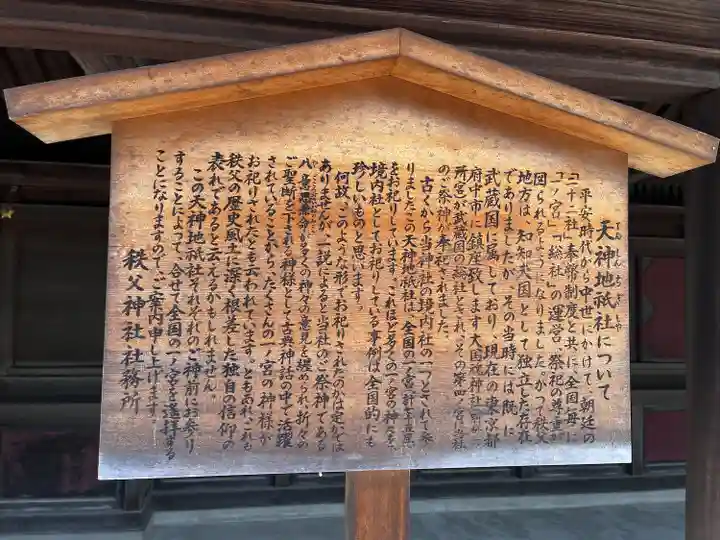 天神地祇社について
てんしんちぎしゃ
平安時代から中世にかけて、朝廷の
「二十二社」奉幣制度と共に、全国毎に
「一ノ宮」「総社」の運営・祭祀の尊重が
図られるようになりましたが、かつて秩父
地方は、知知夫国として独立した存在
でありましたが、その当時には既に
武蔵国に属しており、現在の東京都
府中市に鎮座致します大国魂神社
所宮が武蔵国の総社とされ、その第四ノ宮に当社
のご祭神が奉祀されました。
古くから当神社の境内社の一つとされて参
りましたこの天神地祇社は、全国の一ノ宮
をお祀りしています。これほど多くの一ノ宮の神々を、
境内社としてお祀りしている事例は全国的にも
珍しいものと思います。
何故、このような形でお祀りされたのかは定かでは
ありませんが、一説によると当社のご祭神である
八意思兼命が多くの神々の意見を纏められ、折々の
ご聖断を下される神様として古典神話の中で活躍
されていることから、たくさんの一ノ宮の神々様が
お祀りされたとも云われています。ともあれ、これも
秩父の歴史風土に深く根差した独自の信仰の
表れであると云えるかもしれません。
この天神地祇社それぞれのご神前にお参り
することによって、合せて全国の一ノ宮を遥拝する
ことになりますので、ご案内申し上げます。
秩父神社社務所